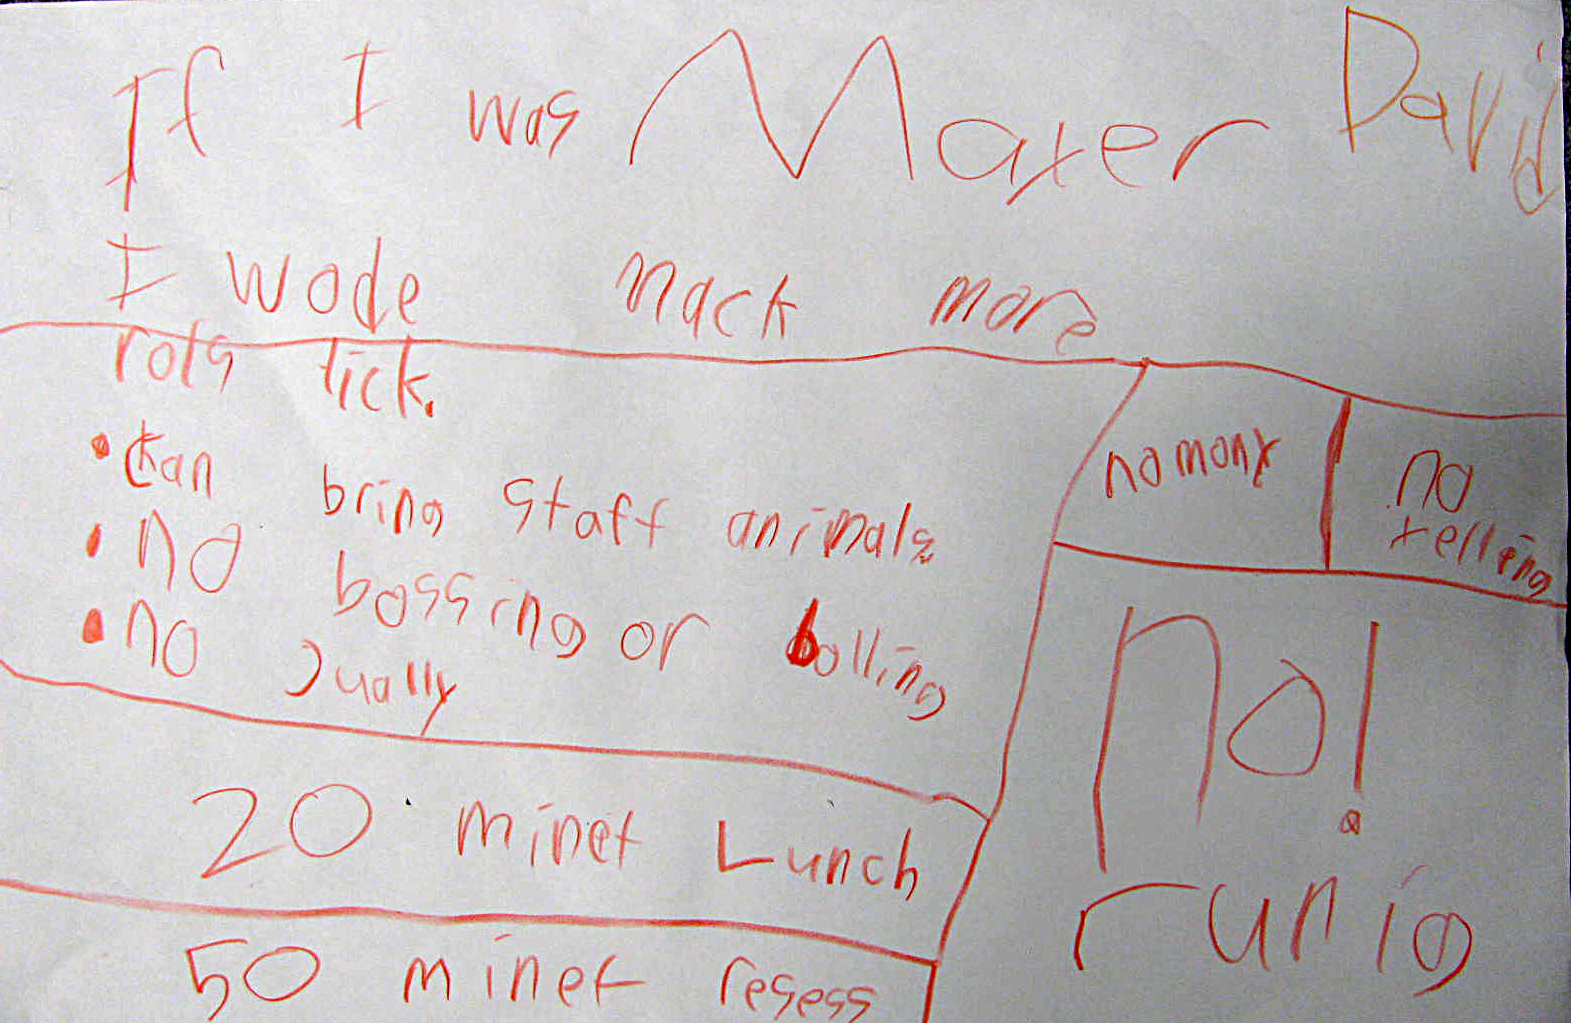 If I was Mayer David
I wode mack more
rols lick.
• Can bring staff animals
• no bossing or bolling
• no Jually
20 minet Lunch
50 minet resess
no mony
no
telling
no!
runig